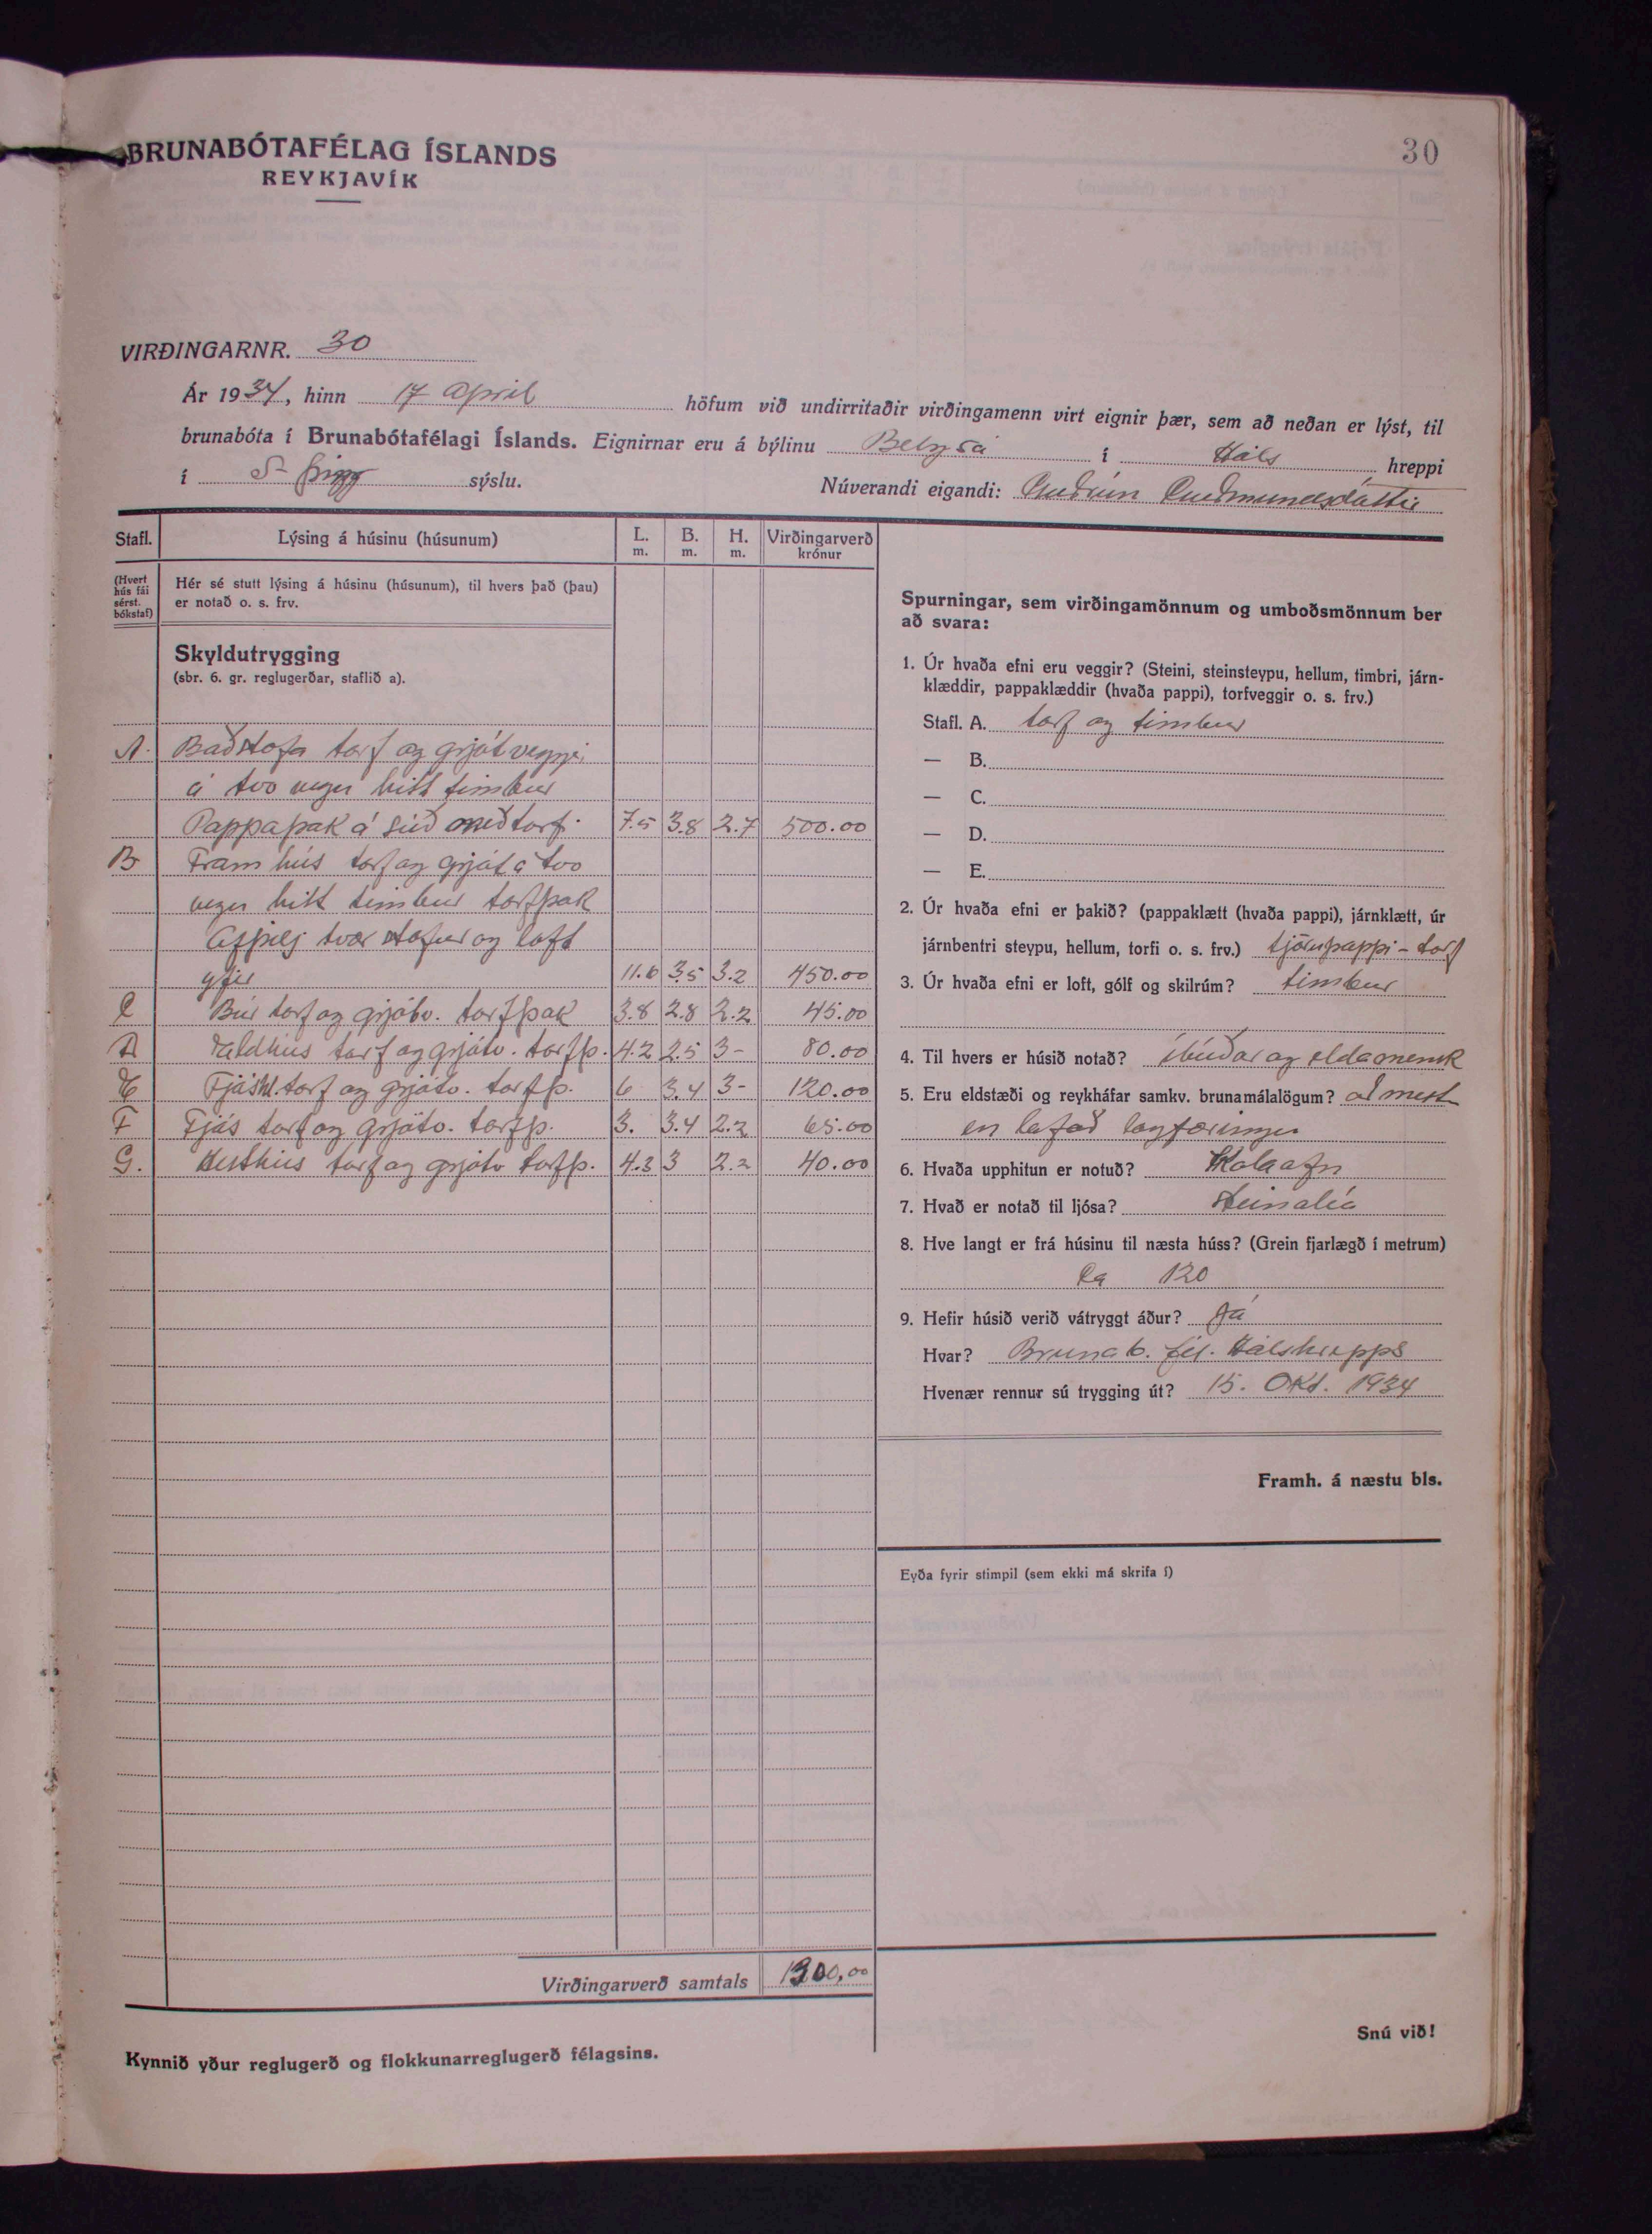 30
BRUNABÓTAFÉLAG ÍSLANDS
REYKJAVÍK
VIRÐINGARNR. 30
Ár 1934, hinn 17 April höfum við undirritaðir virðingamenn virt eignir þær, sem að neðan er lýst, til
brunabóta í Brunabótafélagi Íslands. Eignirnar eru á býlinu Belgsá í Háls hreppi
í S- Þingg sýslu. Núverandi eigandi: Guðrún Guðmundsdóttir
Stafl. Lýsing á húsinu (húsunum) L. m. B. m. H. m. Virðingarverð krónur
(Hvert hús fái sérst. bókstaf)
Hér sé stutt lýsing á húsinu (húsunum), til hvers það (þau)
er notað o. s. frv.
Skyldutrygging
(sbr. 6. gr. reglugerðar, staflið a).
A. Baðstofa torf og grjótveggi
á tvo vegu hitt timbur
Pappaþak á súð með torf. 7.5 3.8 2.7 500.00
B Framhús torf og grjót á tvo
vegu hitt timbur torfþak
Afþilj tvær stofur og loft
yfir 11.6 3.5 3.2 450.00
C Búr torf og grjótv. torfþak 3.8 2.8 2.2 45.00
D Eldhús torf og grjótv. torfþ. 4.2 2.5 3- 80.00
E Fjóshl. torf og grjótv. torfþ. 6 3.4 3- 120.00
F Fjós torf og grjótv. torfþ. 3. 3.4 2.2 65.00
G. Hesthús torf og grjótv torfþ. 4.3 3 2.2 40.00
Virðingarverð samtals 1300,00
Kynnið yður reglugerð og flokkunarreglugerð félagsins.
Spurningar, sem virðingamönnum og umboðsmönnum ber
að svara:
1. Úr hvaða efni eru veggir? (Steini, steinsteypu, hellum, timbri, járn-
klæddir, pappaklæddir (hvaða pappi), torfveggir o. s. frv.)
Stafl. A. torf og timbur
— B.
— C.
— D.
— E.
2. Úr hvaða efni er þakið? (pappaklætt (hvaða pappi), járnklætt, úr
járnbentri steypu, hellum, torfi o. s. frv.) tjörupappi - torf
3. Úr hvaða efni er loft, gólf og skilrúm? timbur
4. Til hvers er húsið notað? íbúðar og eldamensk
5. Eru eldstæði og reykháfar samkv. brunamálalögum? að mest
en lofað lagfæringu
6. Hvaða upphitun er notuð? Kolaofn
7. Hvað er notað til ljósa? Steinolía
8. Hve langt er frá húsinu til næsta húss? (Grein fjarlægð í metrum)
Ca 120
9. Hefir húsið verið vátryggt áður? Já
Hvar? Brunab. fél. Hálshrepps
Hvenær rennur sú trygging út? 15. Okt. 1934
Framh. á næstu bls.
Eyða fyrir stimpil (sem ekki má skrifa í)
Snú við!